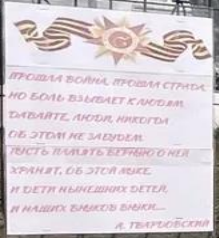 ПРОШЛА ВОЙНА, ПРОШЛА СТРАДА,
НО БОЛЬ ВЗЫВАЕТ К ЛЮДЯМ.
ДАВАЙТЕ, ЛЮДИ, НИКОГДА
ОБ ЭТОМ НЕ ЗАБУДЕМ.
ПУСТЬ ПАМЯТЬ ВЕРНУЮ О НЕЙ
ХРАНЯТ, ОБ ЭТОЙ МУКЕ,
И ДЕТИ НЫНЕШНИХ ДЕТЕЙ,
И НАШИХ ВНУКОВ ВНУКИ...
А. ТВАРДОВСКИЙ